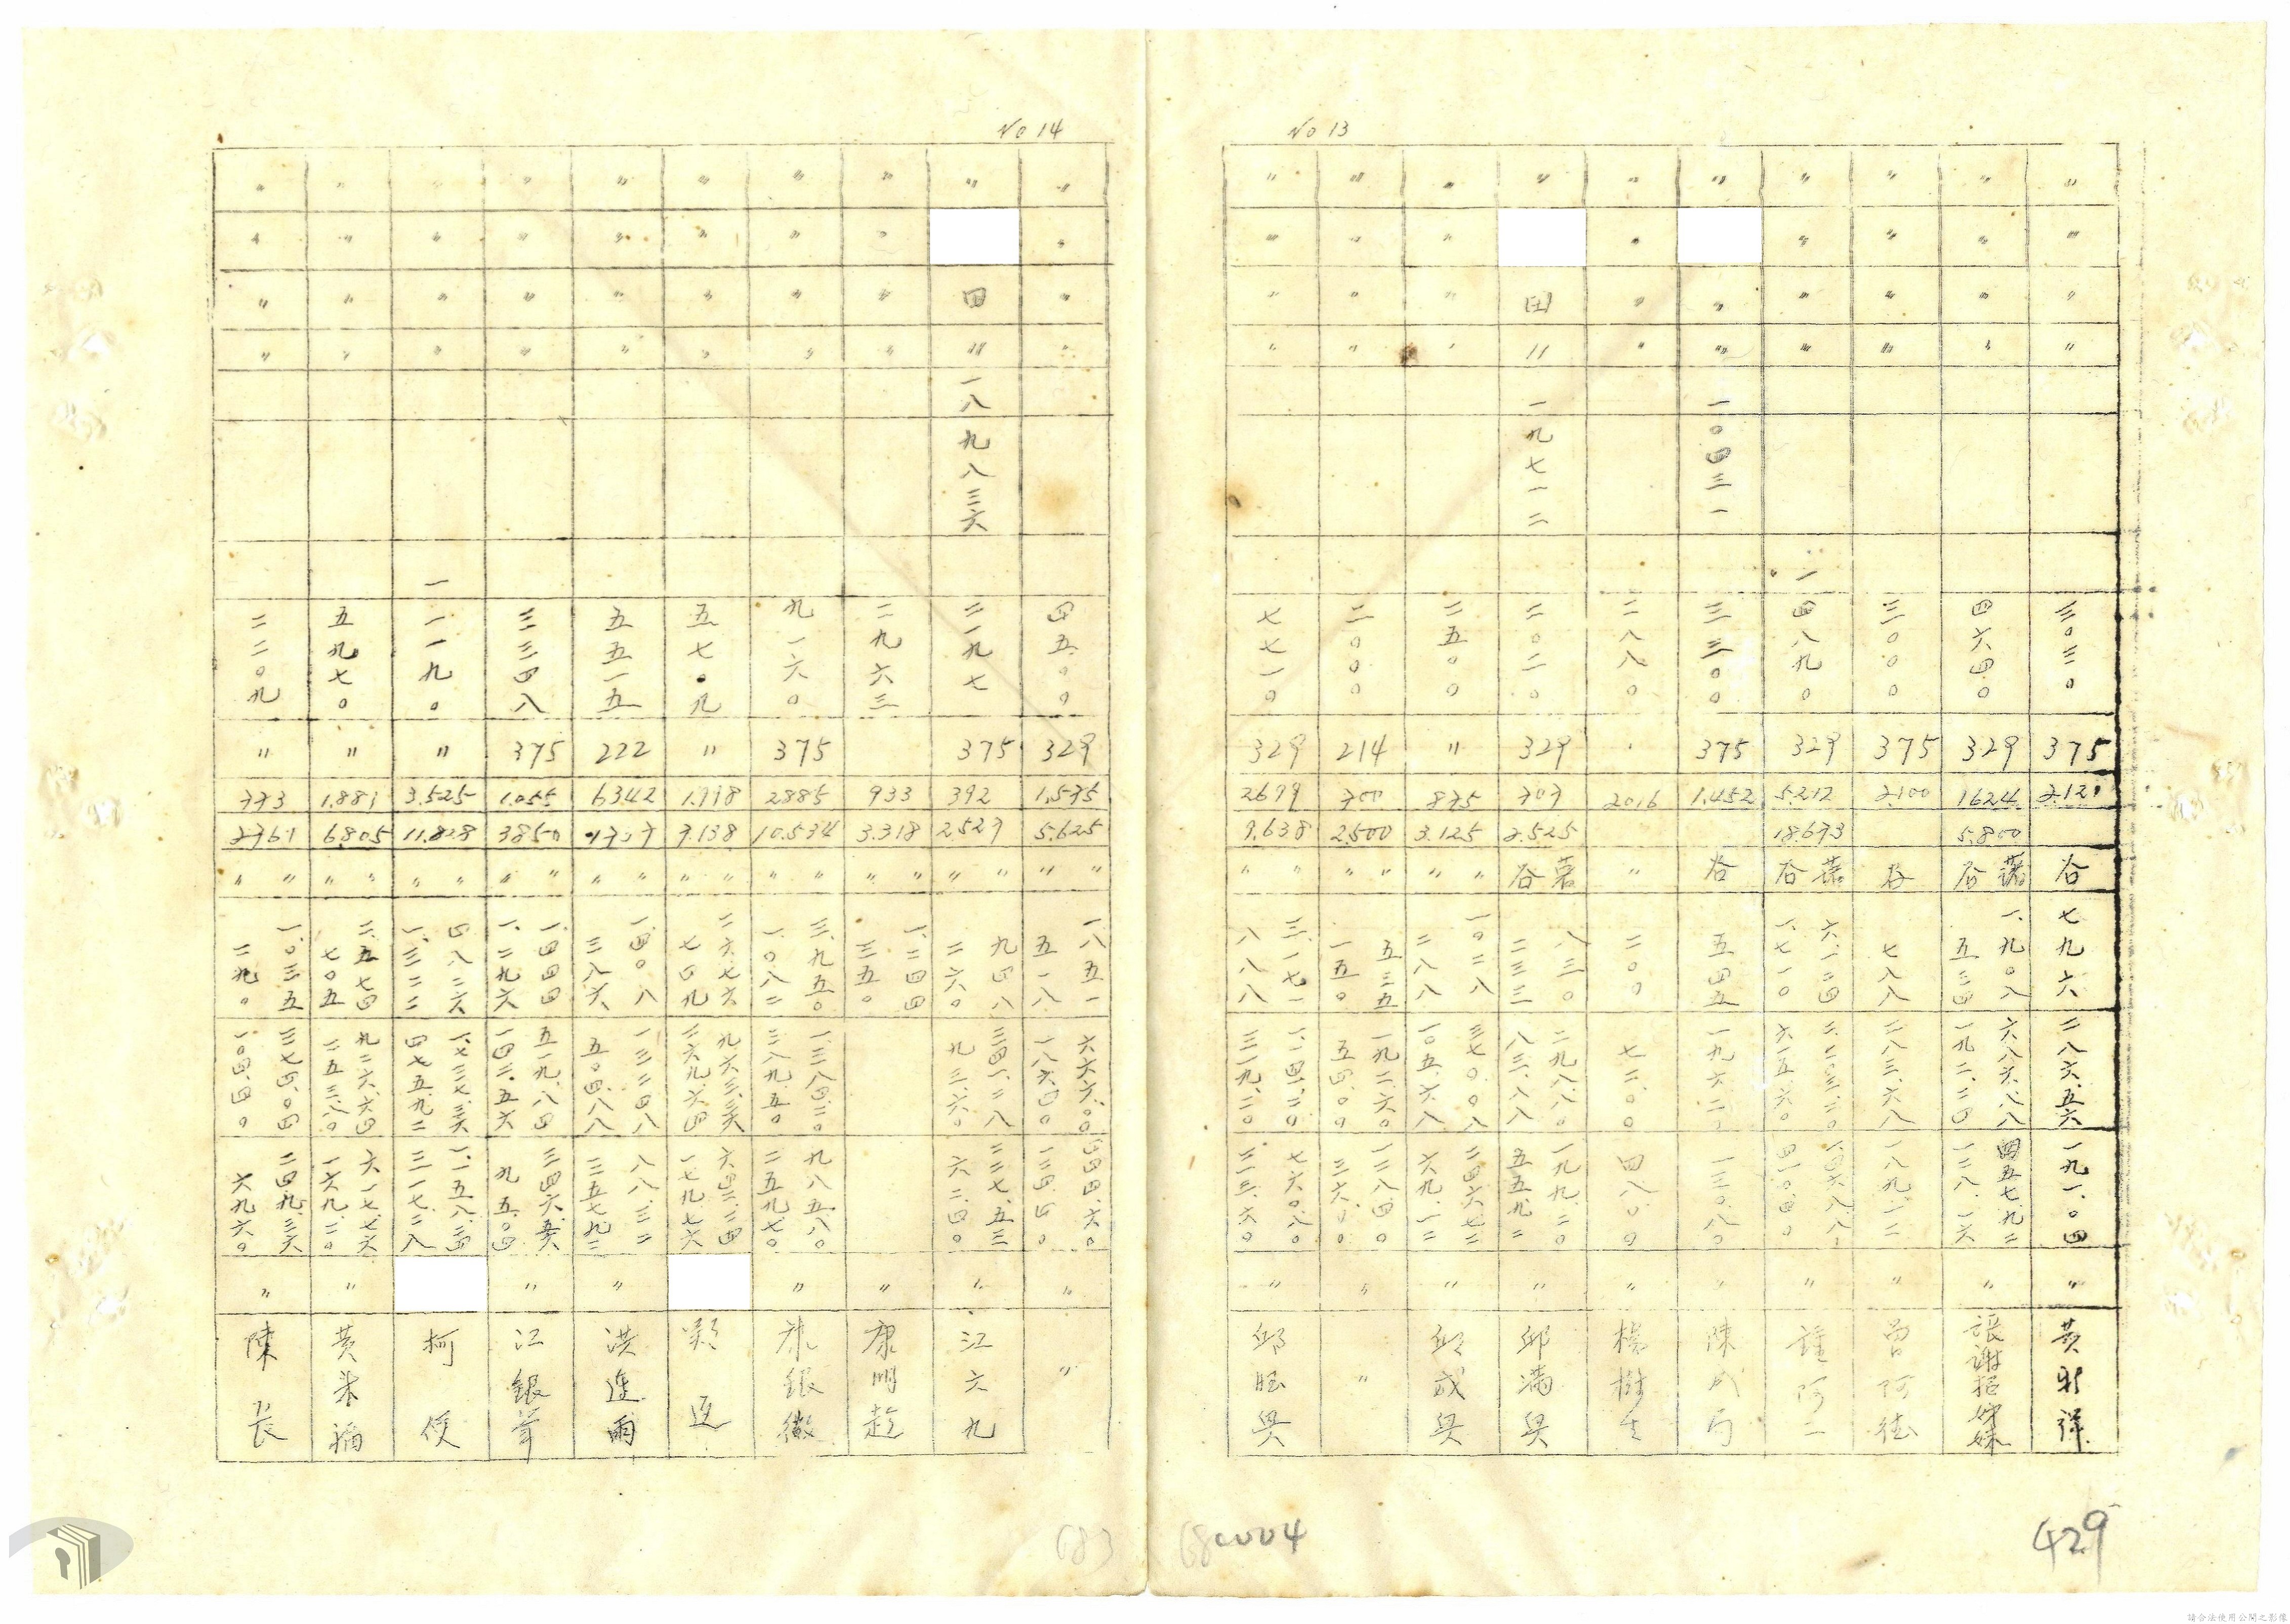 No 13
〃 〃 〃 〃 三〇三〇 375 2.121 谷 七九六 二八六.五六 一九一.〇四 〃 黄新祥
〃 〃 〃 〃 四六四〇 329 1624 5.800 藷 谷 一、九〇八 五三四 六八六.八八 一九二.二四 四五七.九二 一二八.一六 〃 張謝招妹
〃 〃 〃 〃 三〇〇〇 375 2.100 谷 七八八 二八三.六八 一八九.一二 〃 曾阿徳
〃 〃 〃 〃 一四八九〇 329 5.212 18.673 藷 谷 六、一二四 一、七一〇 二、二〇三.二〇 六一五.六〇 一、四六八.八 四一〇.四〇 〃 鍾阿二
〃 〃 〃 一〇四三一 三三〇〇 375 1.452 谷 五四五 一九六.二 一三〇.八〇 〃 陳
〃 〃 〃 〃 二八八〇 〃 2016 〃 二〇〇 七二.〇〇 四八.〇〇 〃 楊樹生
〃 田 〃 一九七一二 二〇二〇 329 707 2.525 藷 谷 八三〇 二三三 二九八.八〇 八三.八八 一九九.二〇 五五.九二 〃 邱満興
〃 〃 〃 〃 二五〇〇 〃 875 3.125 〃 〃 一〇二八 二八八 三七〇.〇八 一〇五.六八 二四六.七二 六九.一二 〃 邱成興
〃 〃 〃 〃 二〇〇〇 214 700 2.500 〃 〃 五三五 一五〇 一九二.六〇 五四.〇〇 一二八.四〇 三六.〇〇 〃 〃
〃 〃 〃 〃 七七一〇 329 2699 9.638 〃 〃 三、一七一 八八八 一、一四一.二〇 三一九.二〇 七六〇.八〇 二一三.六〇 〃 邱旺興
429
0004
No 14
〃 〃 〃 〃 四五〇〇 329 1.575 5.625 〃 〃 一八五一 五一八 六六六.〇 一八六.四〇 四四四.六〇 一二四.四〇 〃 〃
〃 田 〃 一八九八三六 二一九七 375 392 2527 〃 〃 九四八 二六〇 三四一.二八 九三.六〇 二二七.五二 六二.四〇 〃 江六九
〃 〃 〃 〃 二九六三 933 3.318 〃 〃 一、二四四 三五〇 〃 康明趁
〃 〃 〃 〃 九一六〇 375 2885 10.534 〃 〃 三、九五〇 一、〇八二 一、三八四.二〇 三八九.五〇 九八五.八〇 二五九.七〇 〃 銀
〃 〃 〃 〃 五七〇九 〃 1.798 7.138 〃 〃 二六七六 七四九 九六三.三六 二六九.六四 六四二.二四 一七九.七六
〃 〃 〃 〃 五五一五 222 6342 〃 〃 一、四〇八 三八六 〃 洪進爾
〃 〃 〃 〃 三三四八 375 1.055 3850 〃 〃 一、四四四 一、二九六 五一九.八四 一四二.五六 三四六.五六 九五.〇四 〃 江銀
〃 〃 〃 〃 一一一九〇 〃 3.525 11.828 〃 〃 四八二六 一、三二二 一、七三七.三六 四七五.九二 一、一五八.二四 三一七.二八 柯便
〃 〃 〃 〃 五九七〇 〃 1.881 6.805 〃 〃 二、五七四 七〇五 九二六.六四 二五三.八〇 六一七.七六 一六九.二〇 〃 黄
〃 〃 〃 〃 二二〇九 〃 773 2761 〃 〃 一、〇三五 二九〇 三七四.〇四 一〇四.四〇 二四九.三六 六九.六〇 〃 陳長
683
請合法使用公開之影像